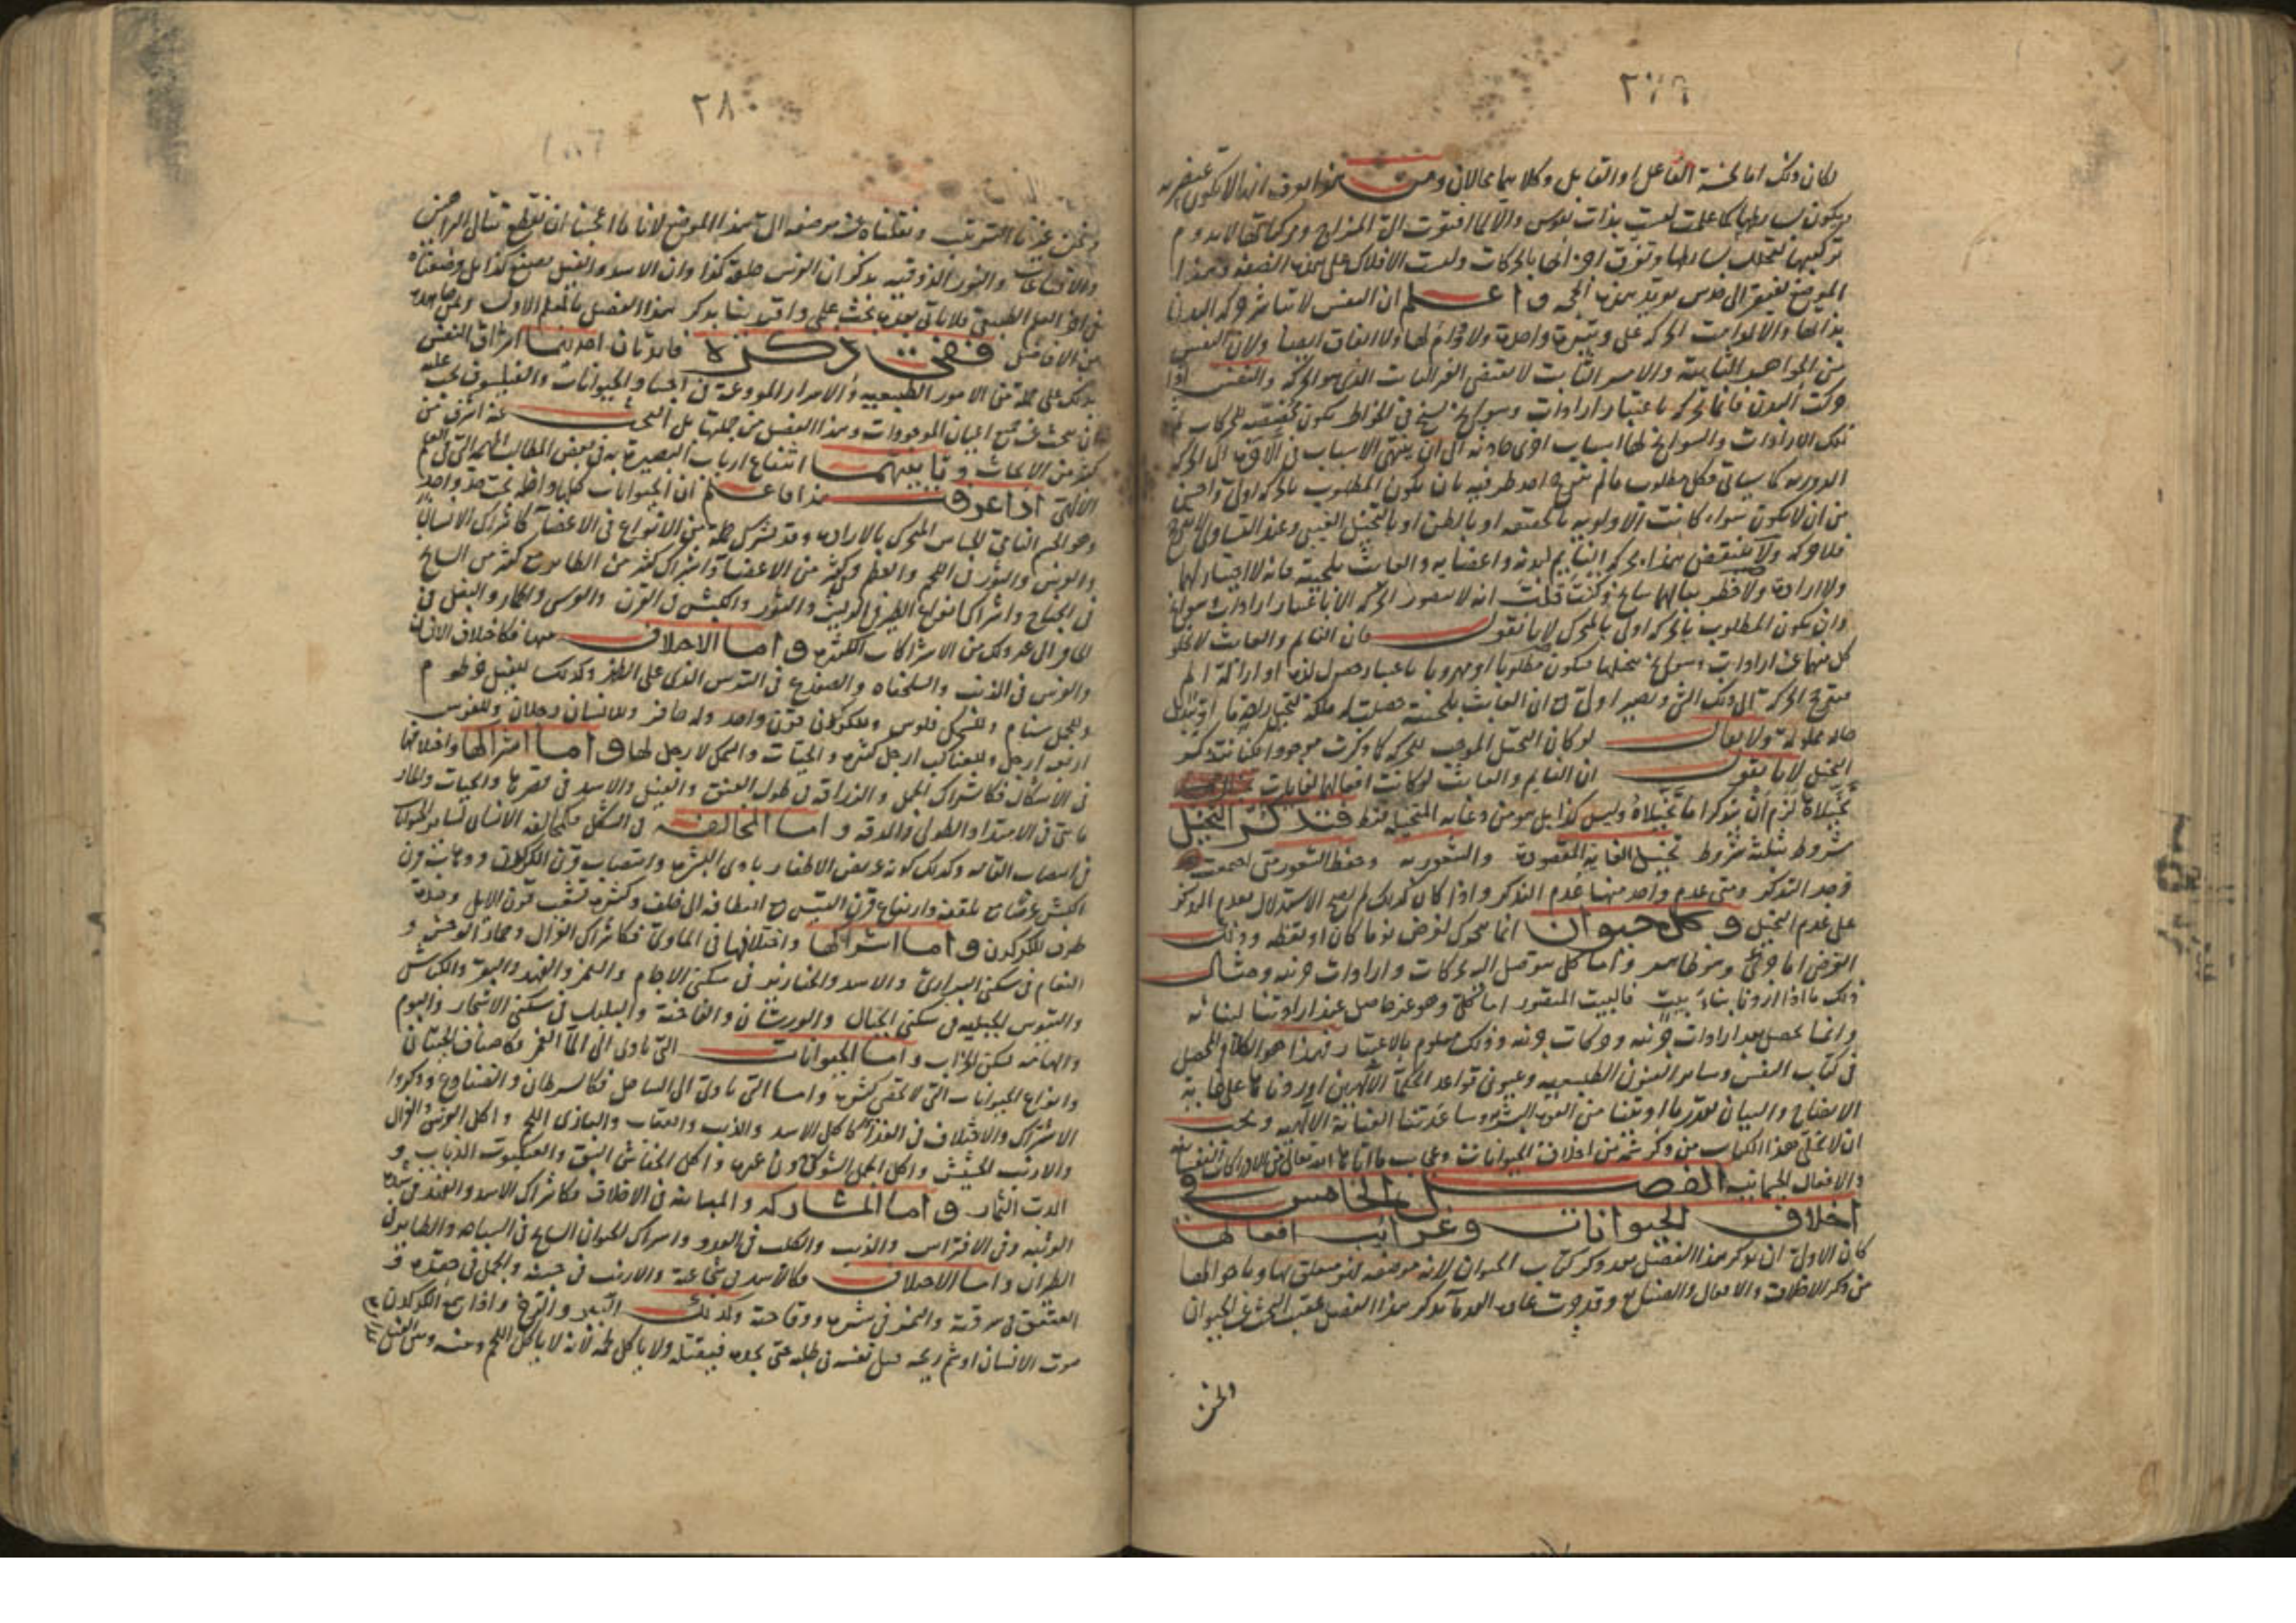 ٢٧٩
لكان ذلك اما لخسة الفاعل او القابل وكلاهما محالان ومن هذا يعرف انها لا تكون عنصرية
تركيبها لتحلل بسايطها وتفرق اجزائها بالحركات وليست الافلاك على هذه الصفة وهذا
الموضع يفتقر الى حدس يؤيد بهذه الحجة واعلم ان النفس لا تباشر حركة البدن
بذاتها والا لدامت الحركة على وتيرة واحدة ولا دوام لها ولا اتفاق ايضا ولان النفس
من الجواهر الثابتة والامر الثابت لا يقتضي الغير الثابت الذي هو الحركة والنفس اذا
حركت البدن فانما تحركه باعتبار ارادات وسوانح تسنح في الخواطر
تلك الارادات والسوانح لها اسباب اخرى حادثة الى ان ينتهي الاسباب في الآخرة الى الحركة
الدورية كما سياتي فكل مطلوب ما لم يترجح احد طرفيه بان يكون المطلوب بالحركة اولى واحسن
من ان لا يكون سواء كانت الاولوية بالحقيقة او بالظن او بالتخيل العبثي وعند التساوي لا ترجح
فلا حركة ولا ينتقض بهذا بحركة النايم ليده واعضايه والعابث بلحيته فانه لا اختيار لهما
ولا ارادة ولا خطر ببالهما سانح وكنت قلت انه لا يتصور الحركة الا باعتبار ارادات سوانح
وان يكون المطلوب بالحركة اولى بالمحرك لانا نقول فان النائم والعابث لا يخلو
كل منهما عن ارادات وسوانح يتخيلها فيكون مطلوبا او مهروبا باعتبار حصول لذة او ازالة الم
فيترجح الحركة الى ذلك الشئ ويصير اولى مع ان العابث بلحيته حصلت له ملكة لتخيل لذة ما او تبديل
حالة مملولة ولا يقال لو كان التخيل الموجب للحركة كما ذكرت موجودا لكنا نتذكر
التخيل لانا نقول ان النايم والعابث لو كانت افعالهما لغايات
تخيلاه لزم ان يتذكرا ما تخيلاه وليس كذا بل هو من وغاية المتخيلة فقط فتذكر التخيل
مشروط بثلثة شروط تخيل الغاية المقصودة والشعور به وحفظ الشعور متى اجتمعت
وجد التذكر ومتى عدم واحد منها عدم التذكر واذا كان كذلك لم يصح الاستدلال بعدم التذكر
على عدم التخيل وكل حيوان انما يتحرك لغرض نوما كان او يقظة وذلك
الغرض اما جزئي وهو ظاهر واما كلي يتوصل اليه بحركات وارادات جزئية ومثال
ذلك ما اذا اردنا بناء بيت فالبيت المتصور اما كلي وهو غير حاصل عند ارادتنا لبنائه
وانما يحصل بعد ارادات جزئية وحركات جزئية وذلك معلوم بالاعتبار فهذا هو الكلام المحصل
في كتاب النفس وساير الفنون الطبيعية وعيون قواعد الحكماء الالهيين اوردناها على غاية
الايضاح والبيان بقدر ما اوتينا من القوة البشرية وساعدتنا العناية الالهية ونحب
ان لا نخلي هذا الكتاب من ذكر شئ من اخلاق الحيوانات وعجائب ما اتاها الله تعالى من الادراكات النفسانية
والافعال الجسمانية الفصل الخامس في
اخلاق الحيوانات وغرائب افعالها
كان الاولى ان يذكر هذا الفصل بعد ذكر كتاب الحيوان لانه موضعه لتعلق بها وباحوالها
من ذكر الاخلاق والافعال والصنايع وقد جرت عادة القدماء بذكر هذا الفصل عقب البحث عن الحيوان
ونحن
٢٨٠
ونحن غيرنا الترتيب ونقلناه عن موضعه الى هذا الموضع لانا ما احببنا ان نقطع تتالى البراهين
والاقتناعات والنور الذوقية بذكر ان الفرس طبعه كذا وان الاسد والفيل يصنع كذا بل وضعناه
في آخر العلم الطبيعي فلا ياتي بعده بحث علمي واقتدينا بذكر هذا الفصل بالمعلم الاول ومن تابعه
من الافاضل ففي تذكره فايدتان احديهما اشراف النفس
بذلك على جملة من الامور الطبيعية والاسرار المودعة في اجساد الحيوانات والفيلسوف يجب عليه
ان يبحث عن جميع اعيان الموجودات وهذا الفصل من جملتها بل البحث عنه اشرف من
كثير من الابحاث وثانيتهما انتفاع ارباب البصيرة به في بعض المطالب المهمة التي في العلم
الالهي اذا عرفت هذا فاعلم ان الحيوانات كلها داخلة تحت حد واحد
وهو الجسم النامي الحساس المتحرك بالارادة وقد تشترك جملة من الانواع في الاعضاء كاشتراك الانسان
والفرس والثور في اللحم والعظم وكثير من الاعضاء واشتراك كثير من الطاير مع كثير من السابح
في الجناح واشتراك انواع الطير في الريش والثور والكبش في القرن والفرس والحمار والبغل في
الحافر الى غير ذلك من الاشتراكات الكثيرة واما الاختلاف منها فكاختلاف الانسان
والفرس في الذنب والسلحفاة والضفدع في الترس الذي على الظهر وكذلك للفيل خرطوم
وللجمل سنام وللسمك فلوس وللكركدن قرن واحد وله حافر وللانسان رجلان وللفرس
اربعة ارجل وللعناكب ارجل كثيرة والحيات والسمك لا رجل لها واما اشتراكها واختلافها
في الاشكال فكاشتراك الجمل والزرافة في طول العنق والفيل والاسد في قصرها والحيات
في الامتداد والطول والدقة واما المخالفة في الشكل فكمخالفة الانسان لساير الحيوانات
في انتصاب القامة وكذلك كونه عريض الاظفار بادي البشرة وانتصاب قرن الكركدن وذهاب قرن
الكبش عرضا مع تلففه وارتفاع قرن التيس مع انعطافه الى خلف وكثرة تشعب قرون الايل وحدة
طرف الكركدن واما اشتراكها واختلافها في الماوى فكاشتراك الغزال وحمار الوحش و
النعام في سكنى البراري والاسد والخنازير في سكنى الاجام والنمر والفهد والبقر والكباش
والتيوس الجبلية في سكنى الجبال والورشان والفاختة والبلبل في سكنى الاشجار والبوم
والهامة لسكنى الخراب واما الحيوانات التي تاوى الى الماء الغمر فكاصناف الحيتان
وانواع الحيوانات التي لا تحصى كثرة واما التي تاوى الى الساحل فكالسرطان والضفادع وذكروا
الاشتراك والاختلاف في الغذاء كاكل الاسد والذئب والعقاب والبازى اللحم واكل الفرس والغزال
والارنب الحشيش واكل الجمل الشوك دون غيره واكل الخفاش البق والعنكبوت الذباب و
الدب الثمار واما المشاركة والمباينة في الاخلاق فكاشتراك الاسد والفهد في شدة
الوثبة وفي الافتراس والذئب والكلب في العدو واشتراك الحيوان السابح في السباحة والطاير في
الطيران واما الاختلاف فكالاسد في شجاعته والارنب في جبنه والجمل في حقده و
العقعق في سرقته والنمر في شره ووقاحته وكذلك الببر واذا سمع الكركدن
صوت الانسان او شم ريحه قتل نفسه في طلبه حتى يجده فيقتله ولا ياكل لحمه لانه لا ياكل اللحم